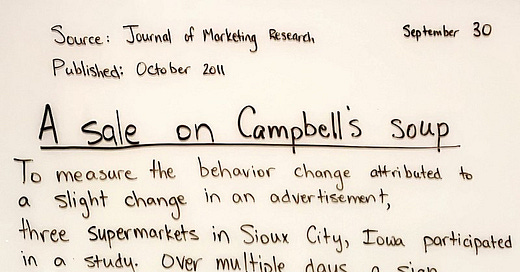 Source: Journal of Marketing Research September 30
Published: October 2011
A sale on Campbell's soup
To measure the behavior change attributed to
a slight change in an advertisement,
three supermarkets in Sioux City, Iowa participated
in a study. Over multiple days a sign